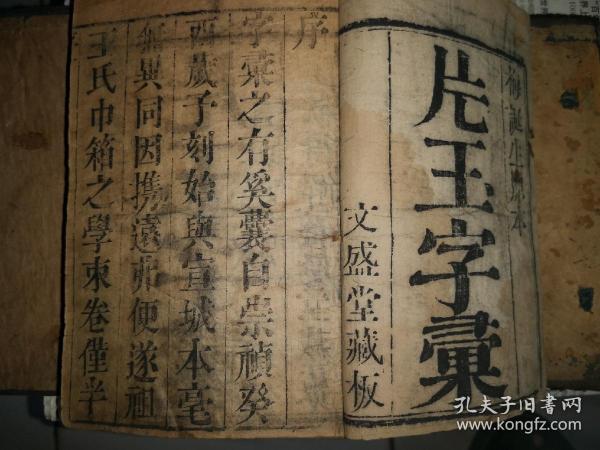 梅誕生原本
片玉字彙
文盛堂藏板
序
字彙之有奚囊自崇禎癸
酉歲予刻始與宣城本毫
無異同因携遠弗便遂祖
王氏巾箱之學束卷僅半
孔夫子旧书网
www.kongfz.com